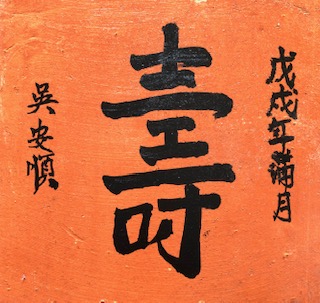 戊戌年滿月
壽
吳安順